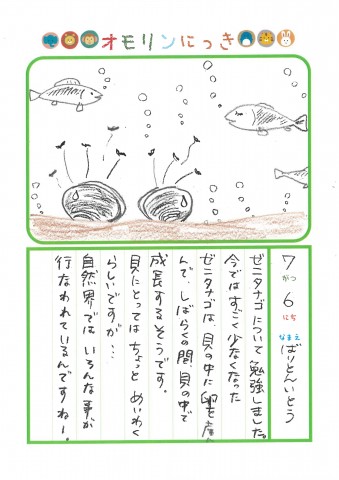 オモリンにっき
7がつ6にち
なまえ ばりとんいとう
ゼニタナゴについて勉強しました。
今ではすごく少なくなった
ゼニタナゴは、貝の中に卵を産
んで、しばらくの間、貝の中で
成長するそうです。
貝にとってはちょっとめいわく
らしいですが…
自然界ではいろんな事が
行なわれているんですねー。